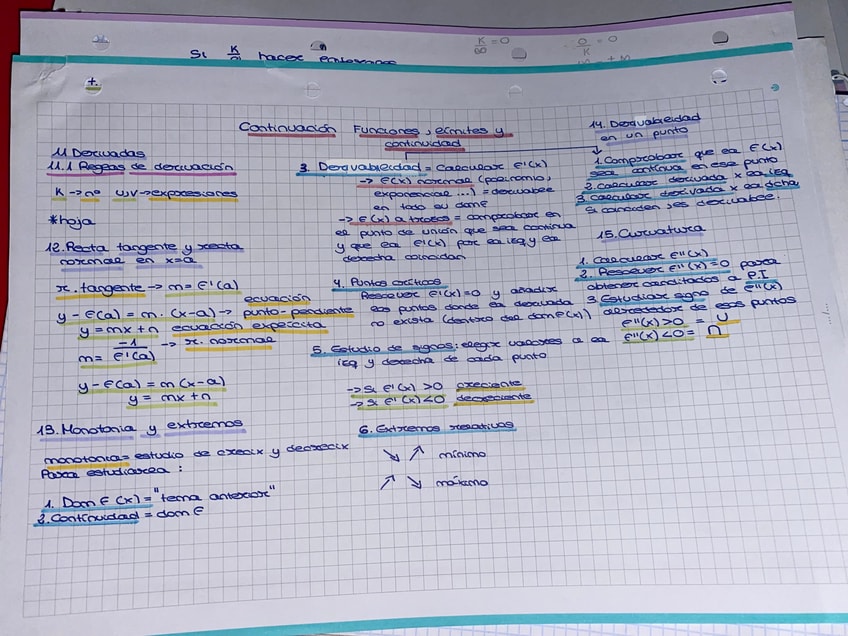 Si K/0 hacer
K/∞ = 0
0/K = 0
Continuación Funciones, límites y
continuidad
11. Derivadas
11.1 Reglas de derivación
K → nº u,v → expresiones
*hoja
12. Recta tangente y recta
normal en x=a
r. tangente → m = f'(a)
y - f(a) = m · (x-a) → ecuación punto-pendiente
y = mx + n ecuación explícita
m = -1/f'(a) → r. normal
y - f(a) = m (x-a)
y = mx + n
13. Monotonía y extremos
monotonía = estudio de crecix y decrecix
Para estudiarla:
1. Dom f(x) = "tema anterior"
2. Continuidad = dom f
3. Derivabilidad = Calcular f'(x)
→ f(x) normal (polinomio,
exponencial ...) = derivable
en todo su dom f
→ f(x) a trozos = comprobar en
el punto de unión que sea continua
y que la f'(x) por la izq y la
derecha coincidan
4. Puntos críticos
Resolver f'(x)=0 y añadir
los puntos donde la derivada
no exista (dentro del dom f(x))
5. Estudio de signos: elegir valores a la
izq y derecha de cada punto
→ Si f'(x) > 0 creciente
→ Si f'(x) < 0 decreciente
6. Extremos relativos
↘ ↗ mínimo
↗ ↘ máximo
14. Derivabilidad
en un punto
1. Comprobar que la f(x)
sea continua en ese punto
2. Calcular derivada x la izq
3. Calcular derivada x la dcha
Si coinciden, es derivable.
15. Curvatura
1. Calcular f''(x)
2. Resolver f''(x)=0 para
obtener canditatos a P.I
3. Estudiar signo de f''(x)
alrededor de esos puntos
f''(x) > 0 = ∪
f''(x) < 0 = ∩